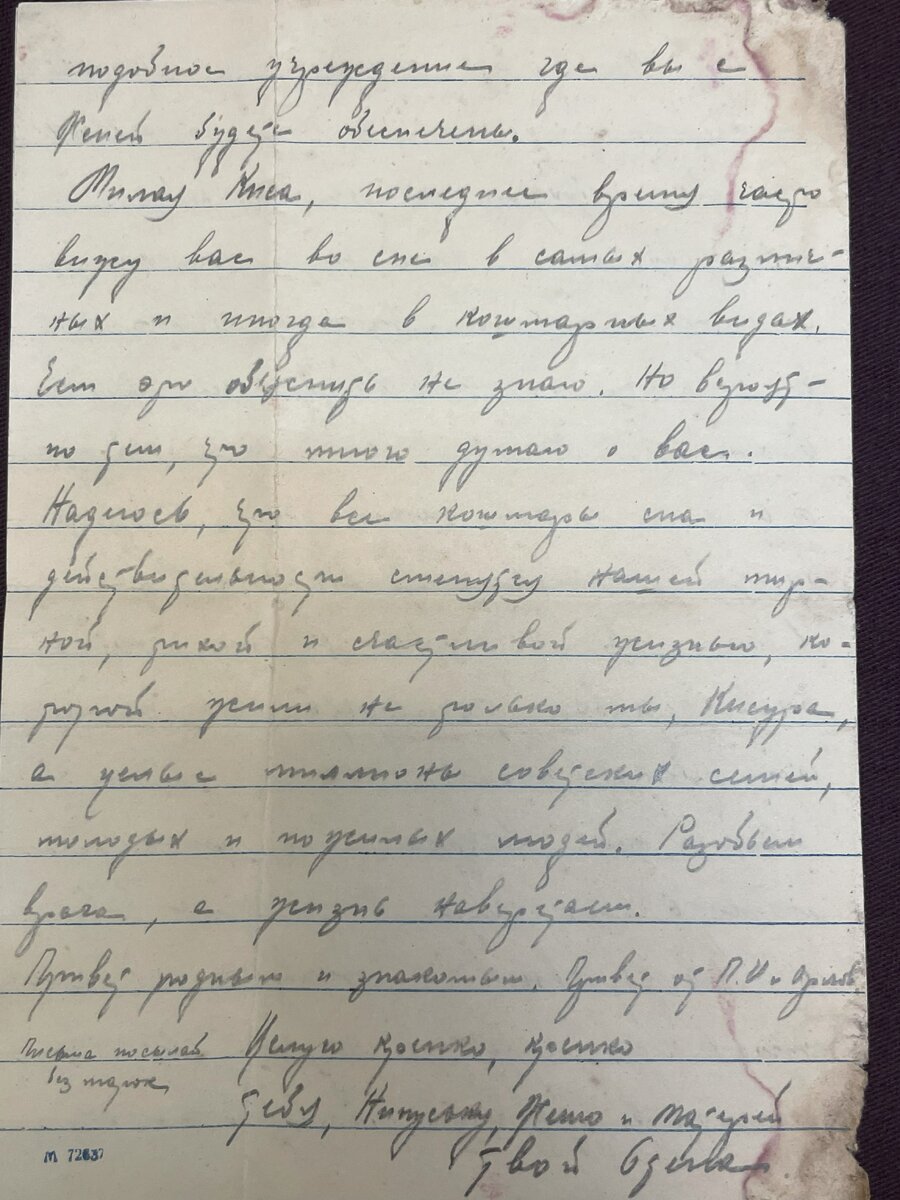 подобное учреждение где вы с
Женей будете обеспечены.
Милая Киса, последнее время часто
вижу вас во сне в самых различ-
ных и иногда в кошмарных видах.
Чем это объяснить не знаю. Но вероят-
но тем, что много думаю о вас.
Надеюсь, что все кошмары сна и
действительности сменятся нашей мир-
ной, тихой и счастливой жизнью, ко-
торой жили не только мы, Кисура,
а целые миллионы советских семей,
молодых и пожилых людей. Разобьем
врага, а жизнь наверстаем.
Привет родным и знакомым. Привет от П.И и
Целую крепко, крепко
Письма посылай
без марок
тебя, Нинуську, Женю и матерей
Твой
М 72637